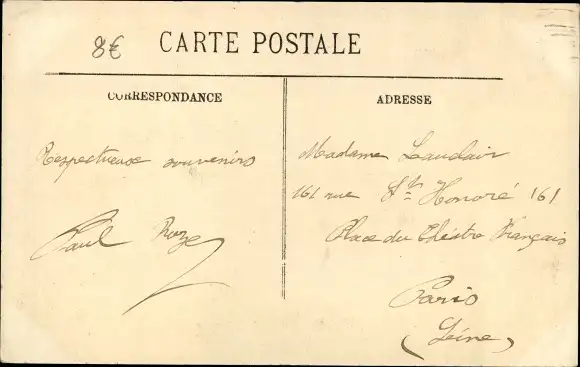 8€
CARTE POSTALE
CORRESPONDANCE
Respectueux souvenirs
Paul Roze
ADRESSE
Madame Lauclair
161 rue St Honoré 161
Place du Théatre Français
Paris
(Seine)